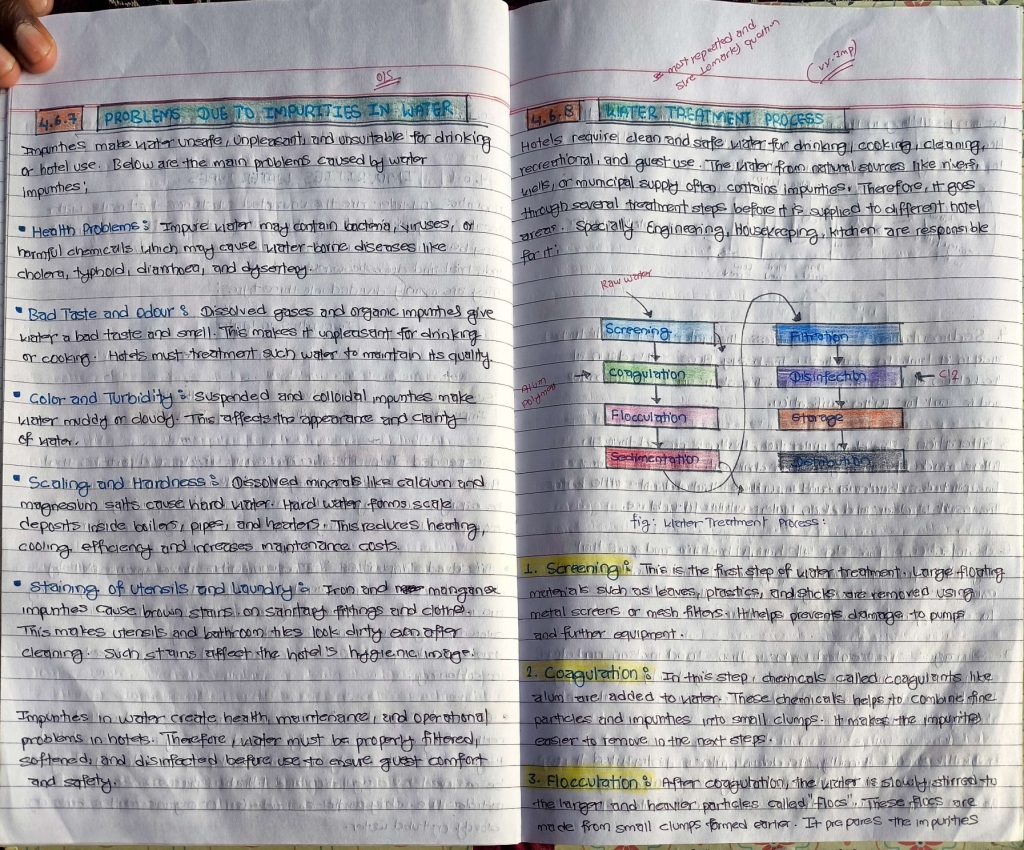 O/S
4.6.7 PROBLEMS DUE TO IMPURITIES IN WATER
Impunties make water unsafe, unpleasant, and unsuitable for drinking
or hotel use. Below are the main problems caused by water
impunties;
• Health Problems: Impure water may contain bacteria, viruses, or
harmful chemicals which may cause water-borne diseases like
cholera, typhoid, diarrhoea, and dysertery.
• Bad Taste and Odour: Dissolved gases and organic impunties give
water a bad taste and small. This makes it unpleasant for drinking
or cooking. Hotels must treatment such water to maintain its quality.
• Color and Turbidity: Suspended and colloidal impunties make
water muddy or cloudy. This affects the appearance and clarity
of water.
• Scaling and Hardness: Dissolved minerals like calcium and
magnesium salts cause hard water. Hard water forms scale
deposits inside boilers, pipes, and heaters. This reduces heating,
cooling efficiency and increases maintenance costs.
• Staining of utensils and laundry: Iron and manganese
impunties cause brown stains on sanitary fittings and clothes.
This makes utensils and bathroom tiles look dirty even after
cleaning. Such stains affect the hotel's hygienic image.
Impunties in water create health, maintenance, and operational
problems in hotels. Therefore, water must be properly filtered,
softened, and disinfected before use to ensure guest comfort
and safety.
* most repeated and
sure 10marks question
(vv. Imp)
4.6.8 WATER TREATMENT PROCESS
Hotels require clean and safe water for drinking, cooking, cleaning,
recreational, and guest use. The water from natural sources like rivers,
wells, or municipal supply often contains impurities. Therefore, it goes
through several treatment steps before it is supplied to different hotel
areas. Specially Engineering, Housekeeping, kitchen are responsible
for it:
Raw water
Screening
Alum
Polymer
Coagulation
Flocculation
Sedimentation
Filtration
Disinfection
Cl2
Storage
Distribution
fig: Water Treatment Process:
1. Screening: This is the first step of water treatment. Large floating
materials such as leaves, plastics, and sticks are removed using
metal screens or mesh filters. It helps prevents damage to pumps
and further equipment.
2. Coagulation: In this step, chemicals called coagulants like
alum are added to water. These chemicals helps to combine fine
particles and impurities into small clumps. It makes the impurities
easier to remove in the next steps.
3. Flocculation: After coagulation, the water is slowly stirred to
the larger and heavier particles called "flocs". These flocs are
made from small clumps formed earlier. It prepares the impurities